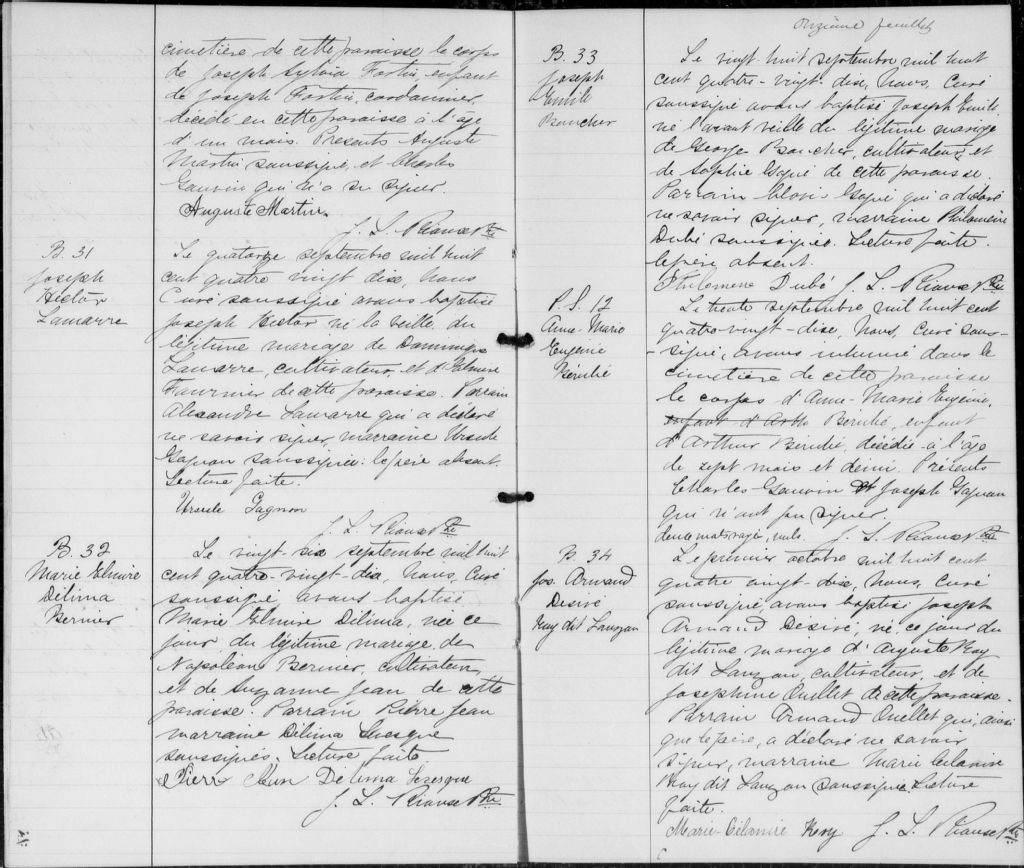 cimetière de cette paroisse le corps
de Joseph Sylvia Fortin, enfant
de Joseph Fortin, cordonnier,
décédé en cette paroisse à l'age
d'un mois. Présents Auguste
Martin soussigné, et Charles
Gauvin qui n'a su signer.
Auguste Martin.
J. L. Ptre
B. 31
Joseph
Hector
Lamarre
Le quatorze septembre mil huit
cent quatre vingt dix, nous
Curé soussigné avons baptisé
Joseph Hector né la veille, du
légitime mariage de Dominique
Lamarre, cultivateur, et d'Elmire
Fournier de cette paroisse. Parrain
Alexandre Lamarre qui a déclaré
ne savoir signer, marraine Ursule
Gagnon soussignée: le père absent.
Lecture faite.
Ursule Gagnon
J. L. Ptre
B. 32
Marie Elmire
Délima
Bernier
Le vingt-six septembre mil huit
cent quatre-vingt-dix, Nous, Curé
soussigné avons baptisé
Marie Elmire Délima, née ce
jour, du légitime mariage de
Napoléon Bernier, cultivateur
et de Suzanne Jean de cette
paroisse. Parrain Pierre Jean
marraine Délima Levesque
soussignés. Lecture faite
Pierr Jean Délima Levesque
J. L. Ptre
Onzième feuillet
B. 33
Joseph
Emile
Boucher
Le vingt huit septembre mil huit
cent quatre-vingt-dix, Nous, Curé
soussigné avons baptisé Joseph Emile
né l'avant veille du légitime mariage
de George Boucher, cultivateur, et
de Sophie Gagné de cette paroisse.
Parrain Clovis Gagné qui a déclaré
ne savoir signer, marraine Philomène
Dubé soussignée. Lecture faite.
le père absent.
Philomene Dubé J. L. Ptre
P. S. 12
Anne-Marie
Eugénie
Bérubé
Le trente septembre mil huit cent
quatre-vingt-dix, Nous, Curé sous-
-signé, avons inhumé dans le
cimetière de cette paroisse
le corps d'Anne-Marie Eugénie,
enfant d'Arth Bérubé, enfant
d'Arthur Bérubé, décédée à l'âge
de sept mois et demi. Présents
Charles Gauvin et Joseph Gagnon
qui n'ont pu signer.
deux mots rayés, nuls. J. L. Ptre
B 34
Jos. Armand
Désiré
Roy dit Lauzon
Le premier octobre mil huit cent
quatre vingt-dix, Nous, Curé
soussigné, avons baptisé Joseph
Armand Désiré, né, ce jour du
légitime mariage d'Auguste Roy
dit Lauzon, cultivateur, et de
Joséphine Ouellet de cette paroisse.
Parrain Armand Ouellet qui, ainsi
que le père, a déclaré ne savoir
signer, marraine Marie Célanire
Roy dit Lauzon soussignée, Lecture
faite.
Marie-Célanire Roy J. L. Ptre